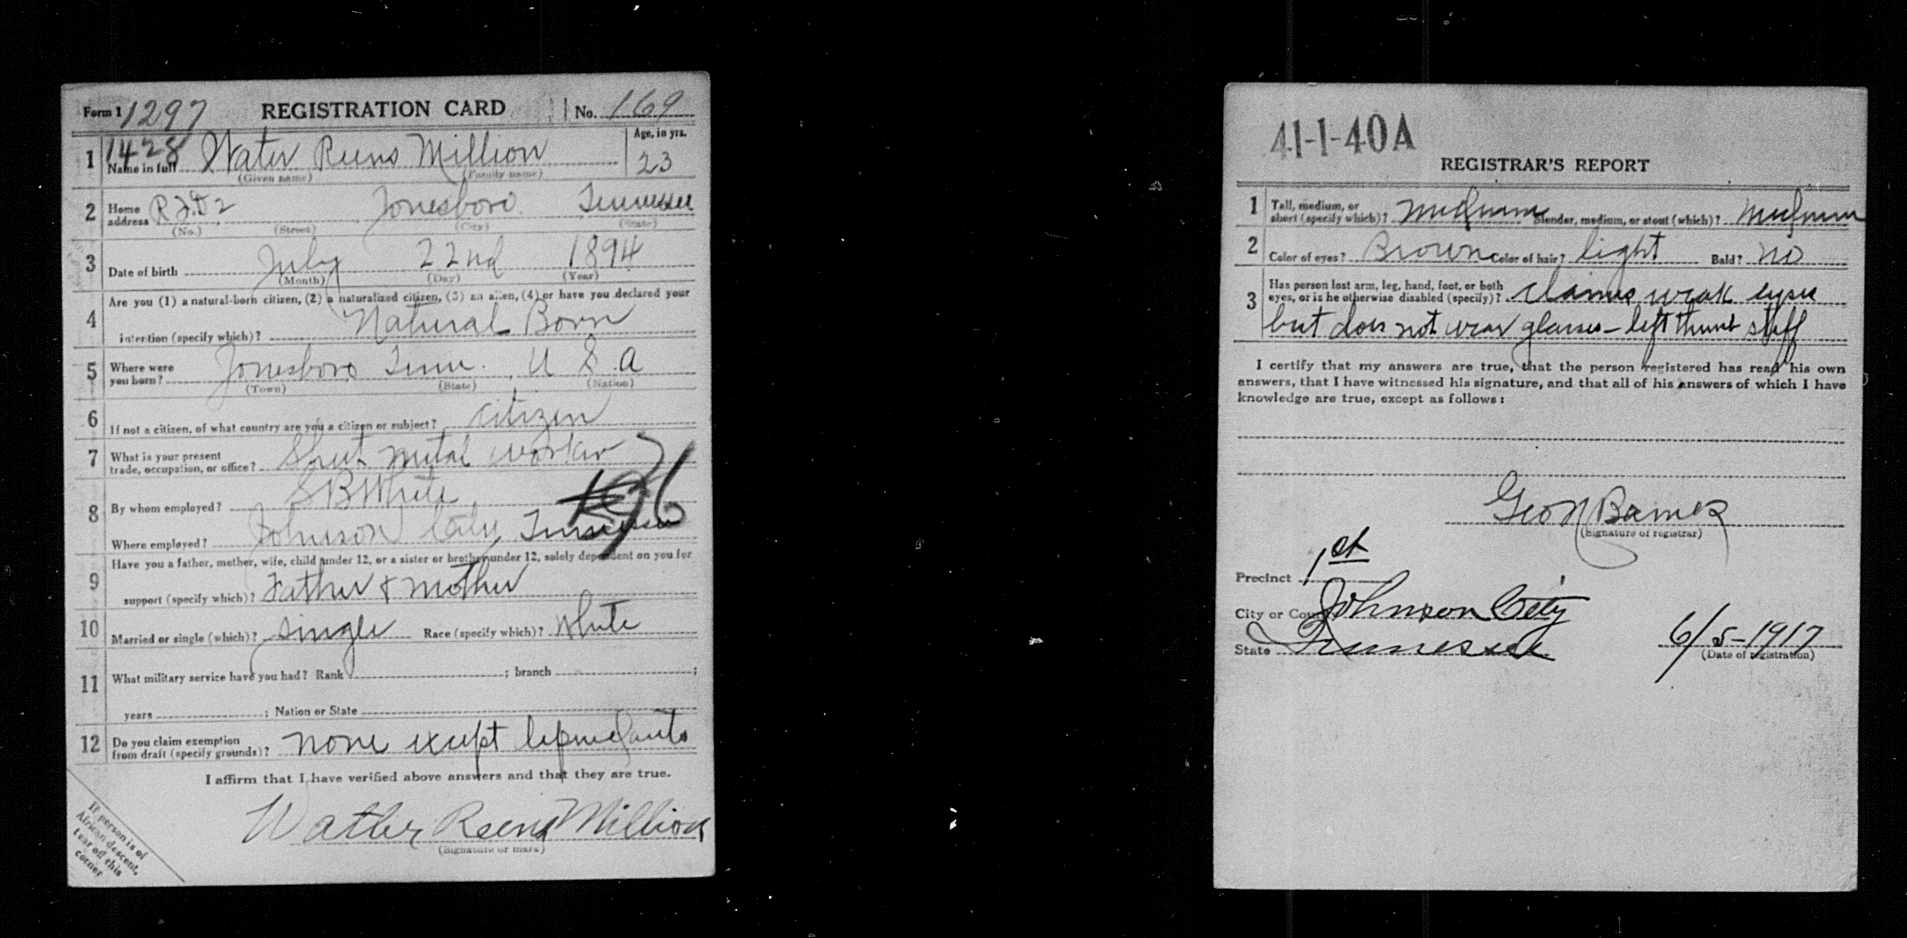 Form 1 1297 REGISTRATION CARD No. 169
1 1428 Name in full Water Reens Million Age, in yrs. 23
(Given name) (Family name)
2 Home address R.F.D 2 Jonesboro. Tennessee
(No.) (Street) (City) (State)
3 Date of birth July 22nd 1894
(Month) (Day) (Year)
Are you (1) a natural-born citizen, (2) a naturalized citizen, (3) an alien, (4) or have you declared your
4 intention (specify which)? Natural Born
5 Where were you born? Jonesboro Tenn. U S.A
(Town) (State) (Nation)
6 If not a citizen, of what country are you a citizen or subject? citizen
7 What is your present trade, occupation, or office? Sheet metal worker
196
8 By whom employed? S B White
Where employed? Johnson City, Tennessee
Have you a father, mother, wife, child under 12, or a sister or brother under 12, solely dependent on you for
9 support (specify which)? Father & mother
10 Married or single (which)? single Race (specify which)? White
11 What military service have you had? Rank ; branch ;
years ; Nation or State
12 Do you claim exemption from draft (specify grounds)? none except dependants
I affirm that I have verified above answers and that they are true.
Wather Reens Million
(Signature or mark)
If person is of
African descent,
tear off this
corner
41-1-40A
REGISTRAR'S REPORT
1 Tall, medium, or short (specify which)? medium Slender, medium, or stout (which)? medium
2 Color of eyes? Brown Color of hair? light Bald? no
3 Has person lost arm, leg, hand, foot, or both eyes, or is he otherwise disabled (specify)? claims weak eyes
but does not wear glasses - left thumb stiff
I certify that my answers are true, that the person registered has read his own
answers, that I have witnessed his signature, and that all of his answers of which I have
knowledge are true, except as follows:
Geo N Barnes
(Signature of registrar)
Precinct 1st
City or County Johnson City
State Tennessee 6/5-1917
(Date of registration)